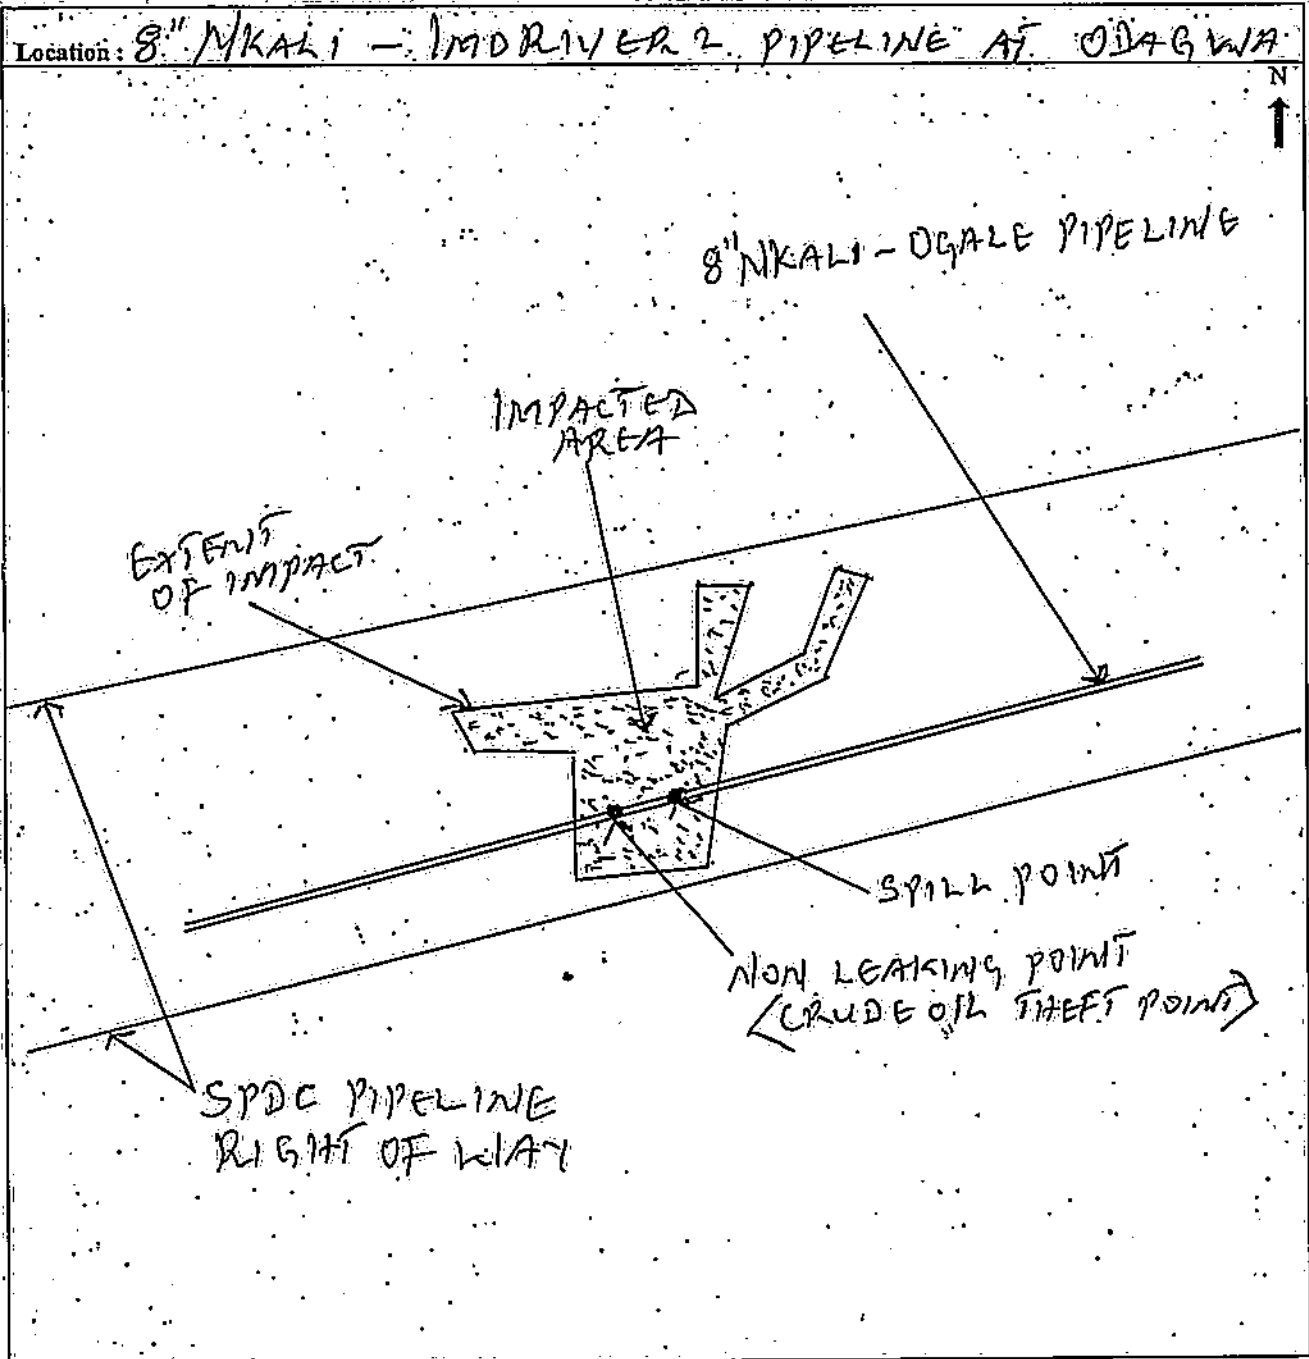 Location: 8" NKALI - IMORIVER 2 PIPELINE AT ODAGWA
N
8" NKALI - OGALE PIPELINE
IMPACTED
AREA
EXTENT
OF IMPACT
SPILL POINT
NON LEAKING POINT
(CRUDE OIL THEFT POINT)
SPDC PIPELINE
RIGHT OF WAY